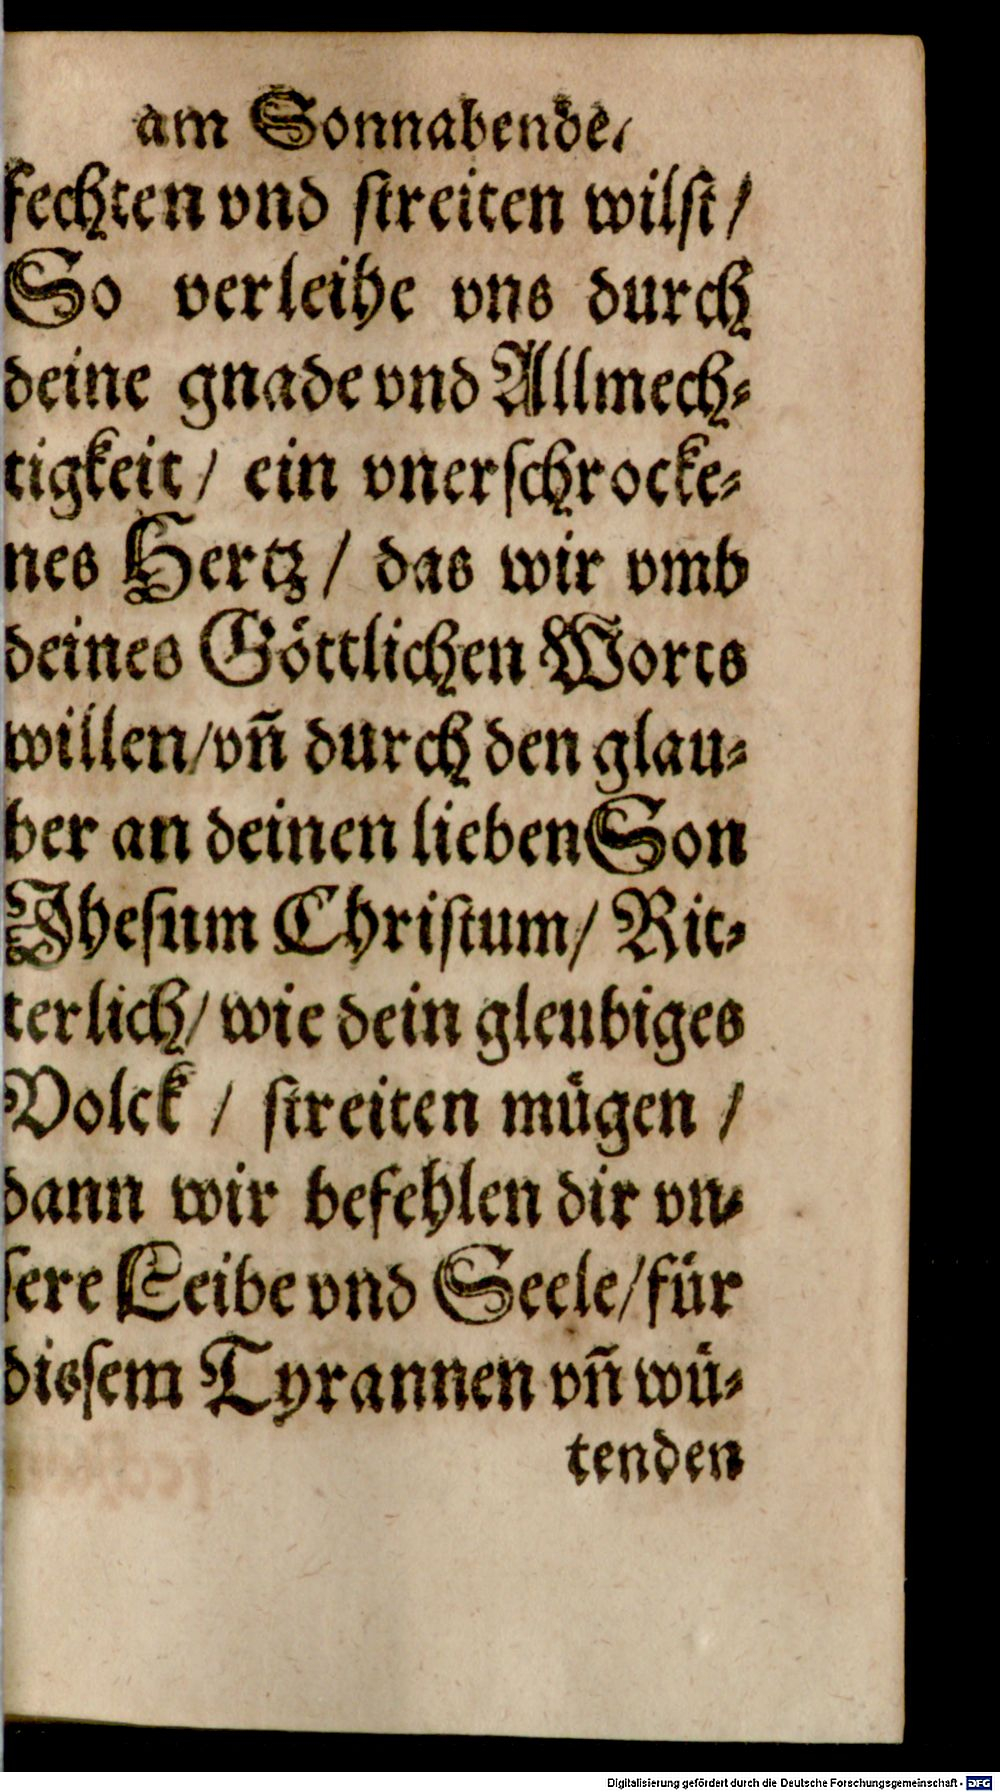 am Sonnabende/
fechten vnd ſtreiten wilſt/
So verleihe vns durch
deine gnade vnd Allmech-
tigkeit/ ein vnerſchrocke-
nes Hertz/ das wir vmb
deines Göttlichen Worts
willen/vñ durch den glau-
ber an deinen lieben Son
Jheſum Chriſtum/ Rit-
terlich/ wie dein gleubiges
Volck / ſtreiten mügen /
dann wir befehlen dir vn-
ſere Leibe vnd Seele/für
diesſem Tyrannen vñ wü-
tenden
Digitalisierung gefördert durch die Deutsche Forschungsgemeinschaft - DFG